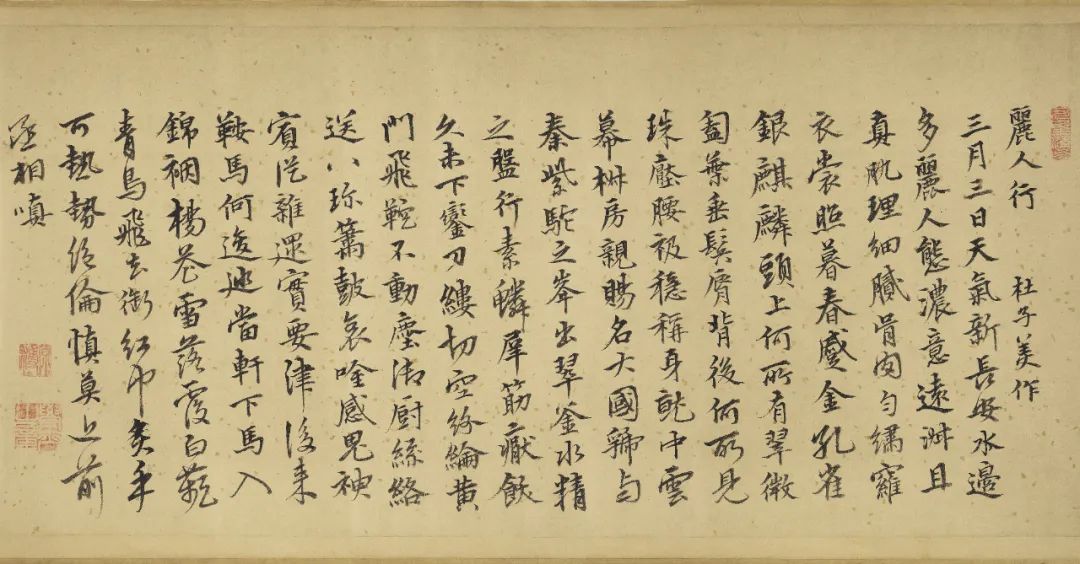 麗人行 杜子美作
三月三日天氣新長安水邊
多麗人態濃意遠淑且
真肌理細膩骨肉勻繡羅
衣裳照暮春蹙金孔雀
銀麒麟頭上何所有翠微
㔩葉垂鬢脣背後何所見
珠壓腰衱穩稱身就中雲
幕椒房親賜名大國虢与
秦紫駝之峯出翠釜水精
之盤行素鱗犀筯猒飫
久未下鑾刀縷切空紛綸黄
門飛鞚不動塵御厨絲絡
送八珎簫鼓哀唫感鬼神
賓從雜遝實要津後来
鞍馬何逡巡當軒下馬入
錦裀楊花雪落覆白蘋
青鳥飛去銜紅巾炙手
可熱勢絶倫慎莫近前
丞相嗔